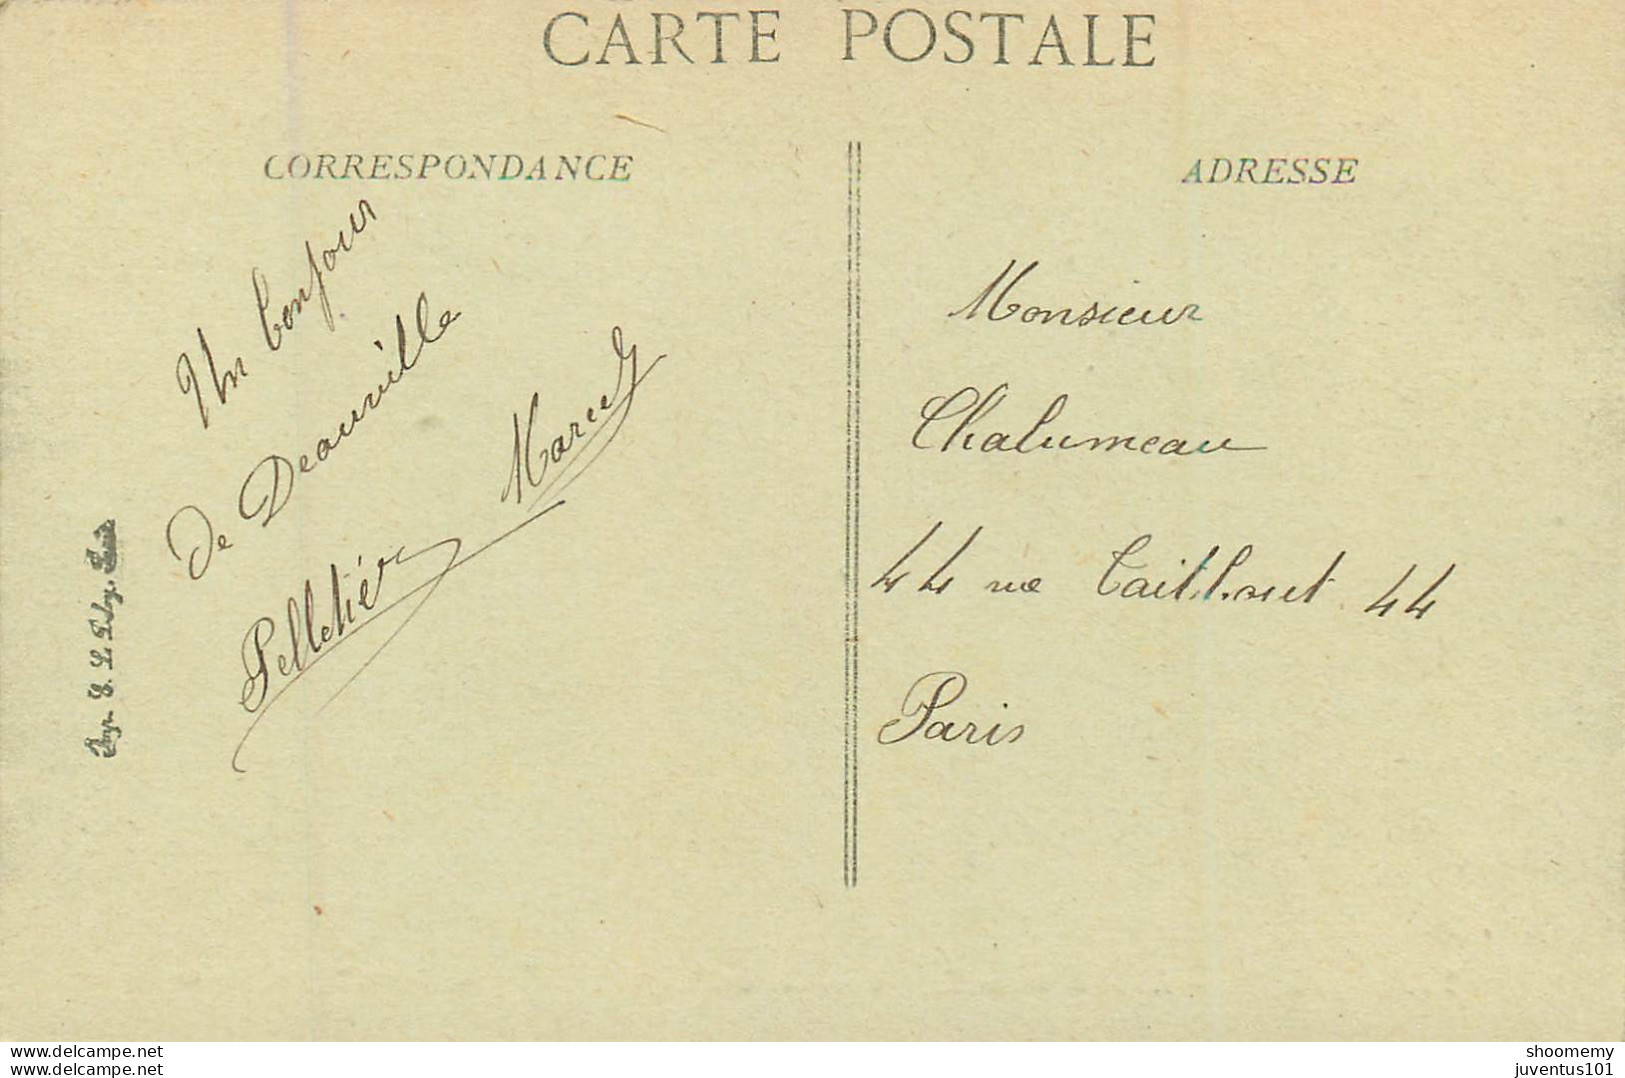 CARTE POSTALE
CORRESPONDANCE
Un bonjour
De Deauville
Pelletier Marcel
Imp. E. Le Deley, Paris
ADRESSE
Monsieur
Chalumeau
44 rue Taitbout 44
Paris
www.delcampe.net
juventus101
shoomemy
juventus101